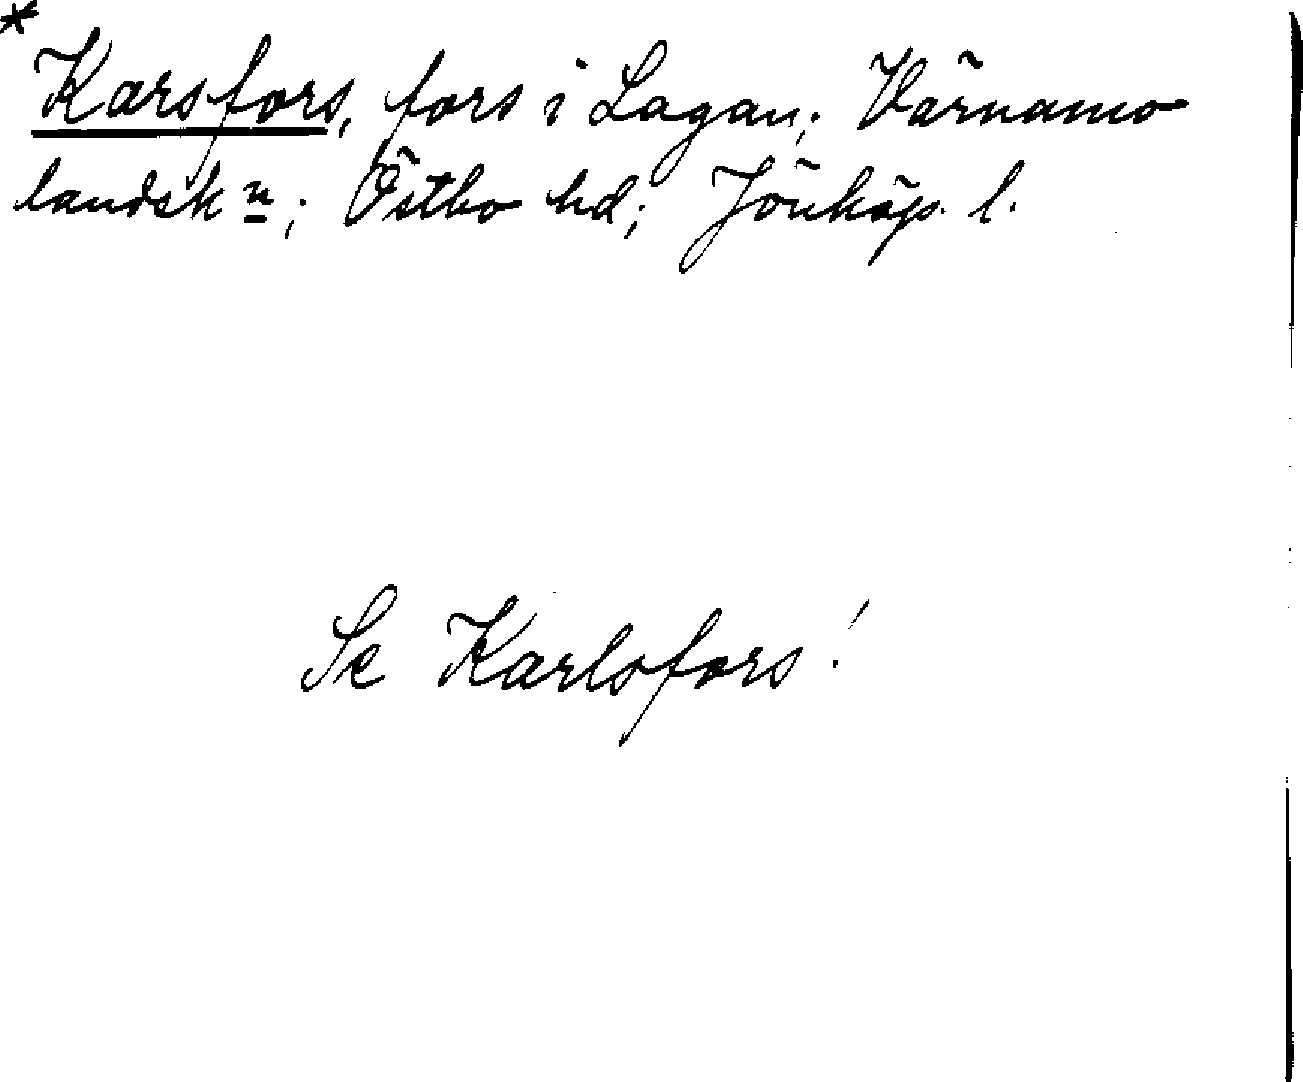 * Karsfors, fors i Lagan; Värnamo
landskn; Östbo hd; Jönköp. l.
Se Karlsfors!